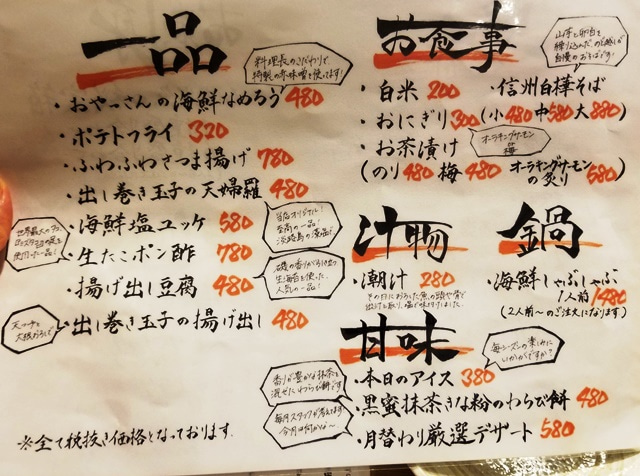 一品
料理長のこだわりで、
特製の赤味噌を使ってます!
・おやっさんの海鮮なめろう 480
・ポテトフライ 320
・ふわふわさつま揚げ 780
・出し巻き玉子の天婦羅 480
・海鮮塩ユッケ 580
・生たこポン酢 780
・揚げ出し豆腐 480
・出し巻き玉子の揚げ出し 480
※全て税抜き価格となっております.
お食事
・白米 200
・おにぎり 300
オーラキングサーモン
梅
・お茶漬け
(のり 480 梅 480 オーラキングサーモンの炙り 580)
・信州白樺そば
(小 480 中 580 大 880)
汁物
・潮汁 280
その日におろした魚の頭や骨で
出汁を取り、塩で味付けしました.
鍋
・海鮮しゃぶしゃぶ
1人前 1480
(2人前〜のご注文になります)
甘味
毎シーズンの楽しみに
いかがですか?
・本日のアイス 380
香り豊かな抹茶を
混ぜたわらび餅です
・黒蜜抹茶きな粉のわらび餅 480
毎月スタッフが考えてます
今月は何かな〜
・月替わり厳選デザート 580